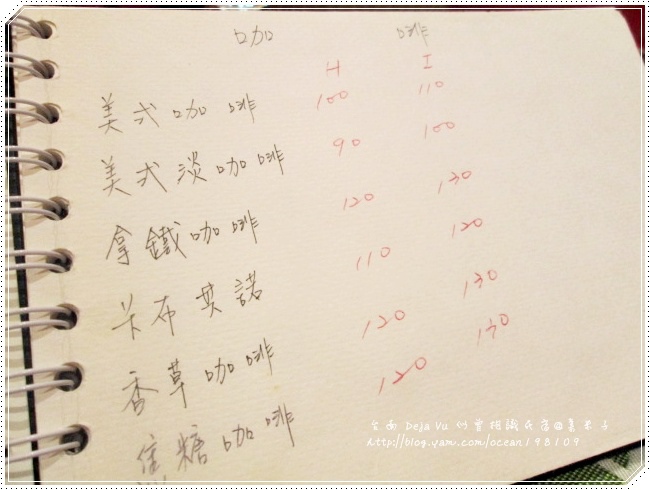 咖 啡
H I
美式咖啡 100 110
美式淡咖啡 90 100
拿鐵咖啡 120 130
卡布其諾 110 120
香草咖啡 120 130
焦糖咖啡 120 130
台南 Deja Vu 似曾相識夜店
http://blog.yam.com/ocean198109